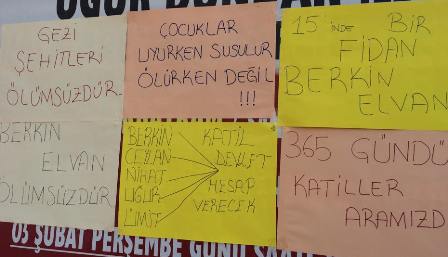 GEZİ
ŞEHİTLERİ
ÖLÜMSÜZDÜR
ÇOCUKLAR
UYURKEN SUSULUR
ÖLÜRKEN DEĞİL
!!!
15 'İNDE BİR
FİDAN
BERKİN
ELVAN
BERKİN
ELVAN
ÖLÜMSÜZDÜR
BERKİN
CEYLAN
NİHAT
UĞUR
ÜMİT
KATİL
DEVLET
HESAP
VERECEK
365 GÜNDÜ
KATİLLER
ARAMIZD
05 ŞUBAT PERŞEMBE GÜNÜ SAAT